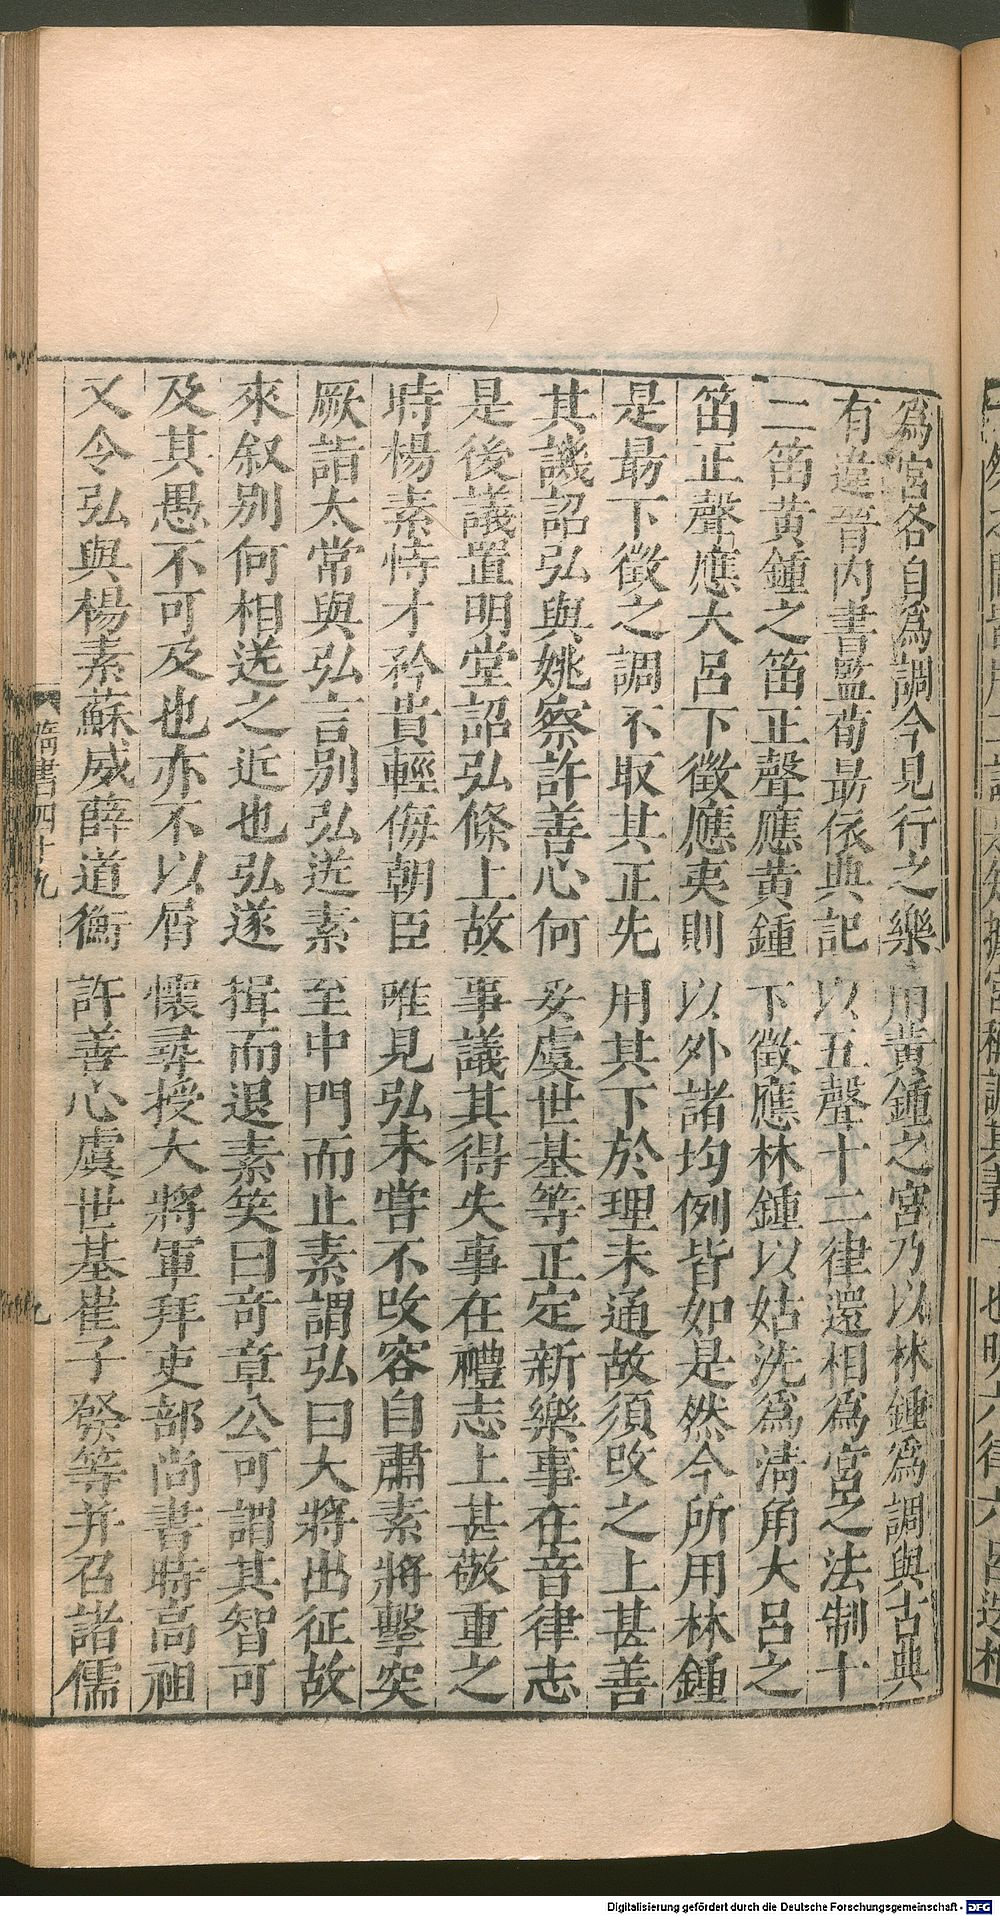 爲宮各自爲調今見行之樂用黃鍾之宮乃以林鍾爲調與古典
有違晉内書監荀勗依典記以五聲十二律還相爲宮之法制十
二笛黃鍾之笛正聲應黃鍾下徵應林鍾以姑洗爲清角大呂之
笛正聲應大呂下徵應夷則以外諸均例皆如是然今所用林鍾
是最下徵之調不取其正先用其下於理未通故須改之上甚善
其議詔弘與姚察許善心何妥虞世基等正定新樂事在音律志
是後議置明堂詔弘條上故事議其得失事在禮志上甚敬重之
時楊素恃才矜貴輕侮朝臣唯見弘未嘗不改容自肅素將擊突
厥詣太常與弘言別弘送素至中門而止素謂弘曰大將出征故
來叙別何相送之近也弘遂揖而退素笑曰竒章公可謂其智可
及其愚不可及也亦不以屑懷尋授大將軍拜吏部尚書時高祖
又令弘與楊素蘇威薛道衡許善心虞世基崔子發等并召諸儒
隋書四十九
九
Digitalisierung gefördert durch die Deutsche Forschungsgemeinschaft - DFG